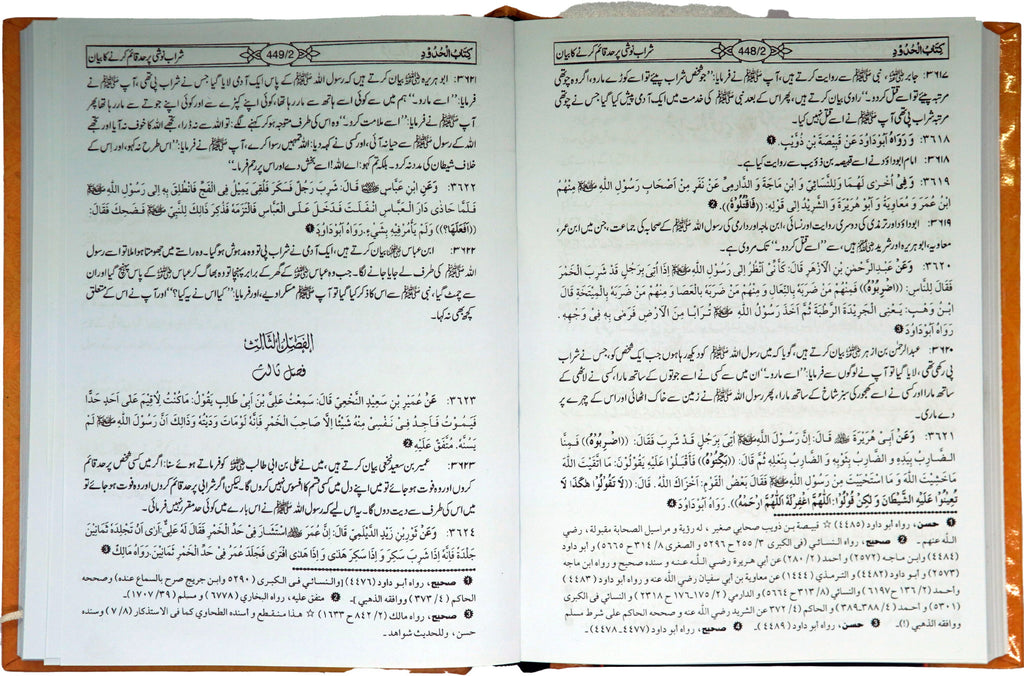 كِتَابُ الْحُدُوْدِ
448/2
شراب نوشی پر حد قائم کرنے کا بیان
۳۶۱۷: جابر رضی اللہ عنہ، نبی ﷺ سے روایت کرتے ہیں، آپ ﷺ نے فرمایا: ’’جو شخص شراب پیئے تو اسے کوڑے مارو، اگر وہ چوتھی
مرتبہ پیئے تو اسے قتل کر دو۔‘‘ راوی بیان کرتے ہیں، پھر اس کے بعد نبی ﷺ کی خدمت میں ایک آدمی پیش کیا گیا جس نے چوتھی
مرتبہ شراب پی تھی آپ ﷺ نے اسے قتل نہیں کیا۔
۳۶۱۸: وَ رَوَاهُ اَبُوْدَاوُدَ عَنْ قَبِيْصَةَ بْنِ ذُوَيْبٍ. ❶
۳۶۱۸: امام ابوداؤد نے اسے قبیصہ بن ذویب سے روایت کیا ہے۔
۳۶۱۹: وَ فِيْ اُخْرٰى لَهُمَا وَلِلنَّسَائِيِّ وَ ابْنِ مَاجَةَ وَ الدَّارِمِيِّ عَنْ نَفَرٍ مِنْ اَصْحَابِ رَسُوْلِ اللّٰهِ ﷺ مِنْهُمْ
ابْنُ عُمَرَ وَ مُعَاوِيَةُ وَ اَبُوْ هُرَيْرَةَ وَ الشَّرِيْدُ اِلٰى قَوْلِهِ: ((فَاقْتُلُوْهُ)). ❷
۳۶۱۹: ابوداؤد اور ترمذی کی دوسری روایت اور نسائی، ابن ماجہ اور دارمی کی رسول اللہ ﷺ کے صحابہ کی جماعت، جن میں ابن عمر،
معاویہ، ابو ہریرہ اور شرید رضی اللہ عنہم ہیں، سے ’’اسے قتل کر دو۔‘‘ تک مروی ہے۔
۳۶۲۰: وَعَنْ عَبْدِالرَّحْمٰنِ بْنِ الْاَزْهَرِ قَالَ: كَاَنِّيْ اَنْظُرُ اِلٰى رَسُوْلِ اللّٰهِ ﷺ اِذَا اُتِيَ بِرَجُلٍ قَدْ شَرِبَ الْخَمْرَ
فَقَالَ لِلنَّاسِ: ((اضْرِبُوْهُ)) فَمِنْهُمْ مَنْ ضَرَبَهٗ بِالنِّعَالِ وَ مِنْهُمْ مَنْ ضَرَبَهٗ بِالْعَصَا وَ مِنْهُمْ مَنْ ضَرَبَهٗ بِالْمِيْتَخَةِ قَالَ
ابْنُ وَهْبٍ: يَعْنِي الْجَرِيْدَةَ الرَّطْبَةَ ثُمَّ اَخَذَ رَسُوْلُ اللّٰهِ ﷺ تُرَابًا مِنَ الْاَرْضِ فَرَمٰى بِهٖ فِيْ وَجْهِهٖ.
رَوَاهُ اَبُوْدَاوُدَ ❸
۳۶۲۰: عبدالرحمٰن بن ازہر رضی اللہ عنہ بیان کرتے ہیں، گویا کہ میں رسول اللہ ﷺ کو دیکھ رہا ہوں جب ایک شخص کو، جس نے شراب
پی رکھی تھی، لایا گیا تو آپ نے لوگوں سے فرمایا: ’’اسے مارو۔‘‘ ان میں سے کسی نے اسے جوتوں کے ساتھ مارا، کسی نے لاٹھی کے
ساتھ مارا اور کسی نے اسے کھجور کی سبز شاخ کے ساتھ مارا، پھر رسول اللہ ﷺ نے زمین سے خاک اٹھائی اور اس کے چہرے پر
دے ماری۔
۳۶۲۱: وَعَنْ اَبِيْ هُرَيْرَةَ قَالَ: اِنَّ رَسُوْلَ اللّٰهِ ﷺ اُتِيَ بِرَجُلٍ قَدْ شَرِبَ فَقَالَ: ((اضْرِبُوْهُ)) فَمِنَّا
الضَّارِبُ بِيَدِهٖ وَ الضَّارِبُ بِثَوْبِهٖ وَ الضَّارِبُ بِنَعْلِهٖ ثُمَّ قَالَ: ((بَكِّتُوْهُ)) فَاَقْبَلُوْا عَلَيْهِ يَقُوْلُوْنَ: مَا اتَّقَيْتَ اللّٰهَ
مَاخَشِيْتَ اللّٰهَ وَ مَا اسْتَحْيَيْتَ مِنْ رَسُوْلِ اللّٰهِ ﷺ فَقَالَ بَعْضُ الْقَوْمِ: اَخْزَاكَ اللّٰهُ. قَالَ: ((لَا تَقُوْلُوْا هٰكَذَا لَا
تُعِيْنُوْا عَلَيْهِ الشَّيْطَانَ وَ لٰكِنْ قُوْلُوْا: اَللّٰهُمَّ اغْفِرْلَهُ اَللّٰهُمَّ ارْحَمْهُ)). رَوَاهُ اَبُوْدَاوُدَ ❹
❶ حسن، رواه ابو داود (٤٤٨٥) ☆ قبيصة بن ذويب صحابي صغير، له رؤية و مراسيل الصحابة مقبولة، رضي
اللّٰه عنهم۔ ❷ صحيح، رواه النسائي (في الكبرى ٣/ ٢٥٥ ح ٥٢٩٦ و الصغرى ٨/ ٣١٤ ح ٥٦٦٥) و أبو داود
(٤٤٨٤) وابن ماجه (٢٥٧٢) و أحمد (٢/ ٢٨٠) عن أبي هريرة رضي الله عنه و سنده صحيح و رواه ابن ماجه
(٢٥٧٣) و أبو داود (٤٤٨٢) والترمذي (١٤٤٤) عن معاوية بن أبي سفيان رضي الله عنه و رواه أبو داود (٤٤٨٣)
و أحمد (٢/ ١٣٦ ح ٦١٩٧) والنسائي (٨/ ٣١٣ ح ٥٦٦٤) و الدارمي (٢/ ١٧٥-١٧٦ ح ٢٣١٨) و النسائي في الكبرى
(٥٣٠١) و أحمد (٤/ ٣٨٨-٣٨٩) والحاكم (٤/ ٣٧٢) عن الشريد رضي الله عنه و صححه الحاكم على شرط مسلم
ووافقه الذهبي (!)۔ ❸ حسن، رواه أبو داود (٤٤٨٩)۔ ❹ صحيح، رواه أبو داود (٤٤٧٧-٤٤٧٨)۔
كِتَابُ الْحُدُوْدِ
449/2
شراب نوشی پر حد قائم کرنے کا بیان
۳۶۲۱: ابو ہریرہ رضی اللہ عنہ بیان کرتے ہیں کہ رسول اللہ ﷺ کے پاس ایک آدمی لایا گیا جس نے شراب پی تھی، آپ ﷺ نے
فرمایا: ’’اسے مارو۔‘‘ ہم میں سے کوئی اسے ہاتھ سے مار رہا تھا، کوئی اپنے کپڑے سے اور کوئی اپنے جوتے سے مار رہا تھا پھر
آپ ﷺ نے فرمایا: ’’اسے ملامت کرو۔‘‘ وہ اس کی طرف متوجہ ہو کر کہنے لگے: تو اللہ سے نہ ڈرا، تجھے اللہ کا خوف نہ آیا اور تجھے
اللہ کے رسول ﷺ سے حیا نہ آئی، اور کسی نے کہہ دیا: اللہ تمہیں رسوا کرے، آپ ﷺ نے فرمایا: ’’اس طرح نہ کہو، اور اس کے
خلاف شیطان کی مدد نہ کرو۔ بلکہ تم کہو: اے اللہ! اسے بخش دے اور اس پر رحم فرما۔‘‘
۳۶۲۲: وَعَنِ ابْنِ عَبَّاسٍ قَالَ: شَرِبَ رَجُلٌ فَسَكِرَ فَلُقِيَ يَمِيْلُ فِي الْفَجِّ فَانْطُلِقَ بِهٖ اِلٰى رَسُوْلِ اللّٰهِ ﷺ
فَلَمَّا حَاذٰى دَارَ الْعَبَّاسِ انْفَلَتَ فَدَخَلَ عَلَى الْعَبَّاسِ فَالْتَزَمَهٗ فَذُكِرَ ذَالِكَ لِلنَّبِيِّ ﷺ فَضَحِكَ فَقَالَ:
((اَفَعَلَهَا؟)) وَلَمْ يَاْمُرْ فِيْهِ بِشَيْءٍ. رَوَاهُ اَبُوْدَاوُدَ ❶
۳۶۲۲: ابن عباس رضی اللہ عنہما بیان کرتے ہیں، ایک آدمی نے شراب پی تو وہ مدہوش ہو گیا۔ وہ راستے میں جھومتا ہوا ملا تو اسے رسول
اللہ ﷺ کی طرف لے جایا جانے لگا۔ جب وہ عباس رضی اللہ عنہ کے گھر کے برابر پہنچا تو وہ بھاگ کر عباس رضی اللہ عنہ کے پاس پہنچ گیا اور ان
سے چمٹ گیا، نبی ﷺ سے اس کا ذکر کیا گیا تو آپ ﷺ مسکرا دیے، اور فرمایا: ’’کیا اس نے یہ کیا؟‘‘ اور آپ نے اس کے متعلق
کچھ بھی نہ کہا۔
الفصل الثالث
فصل ثالث
۳۶۲۳: عَنْ عُمَيْرِ بْنِ سَعِيْدِ النَّخَعِيِّ قَالَ: سَمِعْتُ عَلِيَّ بْنَ اَبِيْ طَالِبٍ يَقُوْلُ: مَاكُنْتُ لِاُقِيْمَ عَلٰى اَحَدٍ حَدًّا
فَيَمُوْتَ فَاَجِدَ فِيْ نَفْسِيْ مِنْهُ شَيْئًا اِلَّا صَاحِبَ الْخَمْرِ فَاِنَّهٗ لَوْمَاتَ وَدَيْتُهٗ وَذَالِكَ اَنَّ رَسُوْلَ اللّٰهِ ﷺ لَمْ
يَسُنَّهٗ. مُتَّفَقٌ عَلَيْهِ ❷
۳۶۲۳: عمیر بن سعید نخعی بیان کرتے ہیں، میں نے علی بن ابی طالب رضی اللہ عنہ کو فرماتے ہوئے سنا: اگر میں کسی شخص پر حد قائم
کروں اور وہ فوت ہو جائے تو میں اپنے دل میں کسی قسم کا افسوس نہیں کروں گا۔ لیکن اگر شرابی پر حد قائم کروں اور وہ فوت ہو جائے تو
میں اس کی طرف سے دیت دوں گا۔ یہ اس لیے کہ رسول اللہ ﷺ نے اس بارے میں کوئی حد مقرر نہیں فرمائی۔
۳۶۲۴: وَعَنْ ثَوْرِبْنِ زَيْدِ الدَّيْلَمِيِّ قَالَ: اِنَّ عُمَرَ اسْتَشَارَ فِيْ حَدِّ الْخَمْرِ فَقَالَ لَهٗ عَلِيٌّ: اَرٰى اَنْ تَجْلِدَهٗ ثَمَانِيْنَ
جَلْدَةً فَاِنَّهٗ اِذَا شَرِبَ سَكِرَ وَ اِذَا سَكِرَ هَذٰى وَ اِذَا هَذٰى افْتَرٰى فَجَلَدَ عُمَرُ فِيْ حَدِّ الْخَمْرِ ثَمَانِيْنَ. رَوَاهُ مَالِكٌ ❸
❶ صحيح، رواه أبو داود (٤٤٧٦) [والنسائي في الكبرى (٥٢٩٠) وابن جريج صرح بالسماع عنده) وصححه
الحاكم (٤/ ٣٧٣) ووافقه الذهبي]۔ ❷ متفق عليه، رواه البخاري (٦٧٧٨) و مسلم (٣٩/ ١٧٠٧)۔
❸ صحيح، رواه مالك (٢/ ٨٤٢ ح ١٦٣٣) ☆ هذا منقطع و أسنده الطحاوي كما في الاستذكار (٨/ ٧) وسنده
حسن، وللحديث شواهد۔